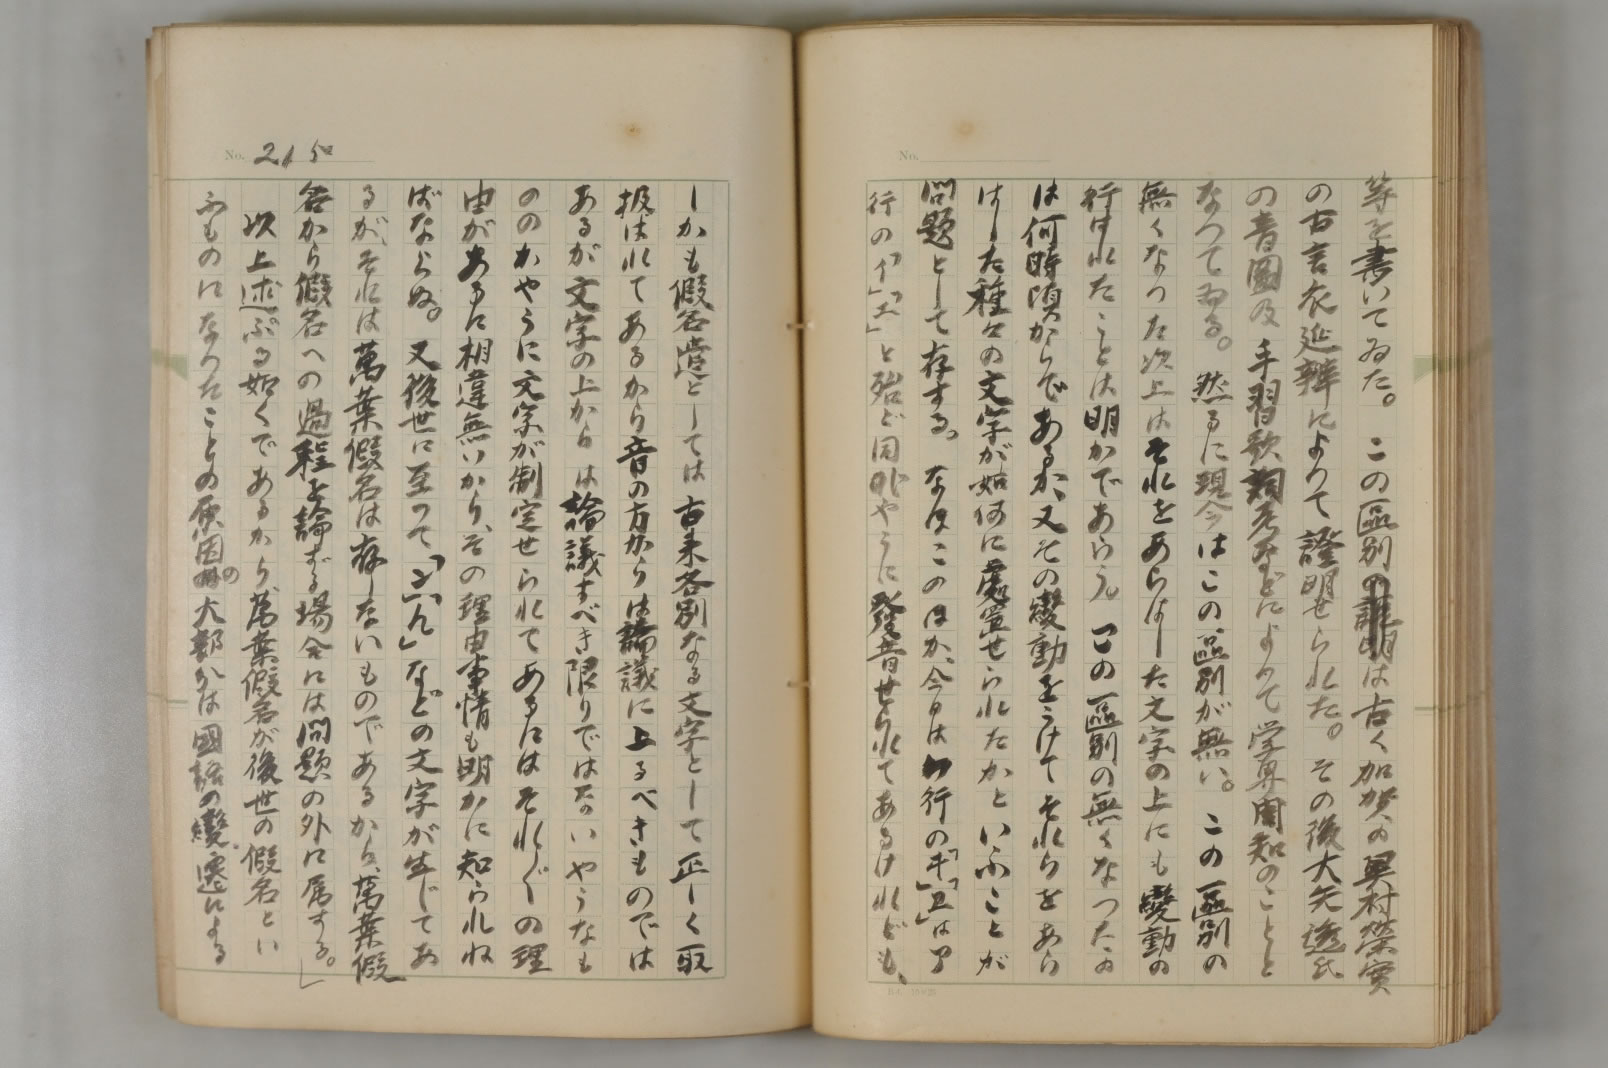 等を書いてゐた。この區別の證明は古く加賀の奥村榮實
の古言衣延辨によりて證明せられた。その後大矢透氏
の音圖及手習歌詞考などによつて学界周知のことと
なつてゐる。然るに現今はこの區別が無い。この區別の
無くなつた次上はそれをあらはした文字の上にも變動の
行はれたことは明かであらう。この區別の無くなつたの
は何時頃からであるか、又その變動をうけてそれらをあら
はした種々の文字が如何に處置せられたかといふことが
問題として存する。なほこのほか、今日はワ行の「ヰ」「ヱ」はア
行の「イ」「エ」と殆ど同じやうに發音せられてあるけれども、
No.
No. 215
しかも假名遣としては古来各別なる文字として正しく取
扱はれてあるから音の方からは論議に上るべきものでは
あるが文字の上からは論議すべき限りではないやうなも
ののかやうに文字が制定せられてあるにはそれ〴〵の理
由があるに相違無いから、その理由事情も明かに知られね
ばならぬ。又後世に至つて「ん」などの文字が生じてあ
るが、それは萬葉假名は存しないものであるから、萬葉假
名から假名への過程を論ずる場合には問題の外に属する。」
次上述ぶる如くであるから、萬葉假名が後世の假名とい
ふものになつたことの原因の大部分は國語の變遷による